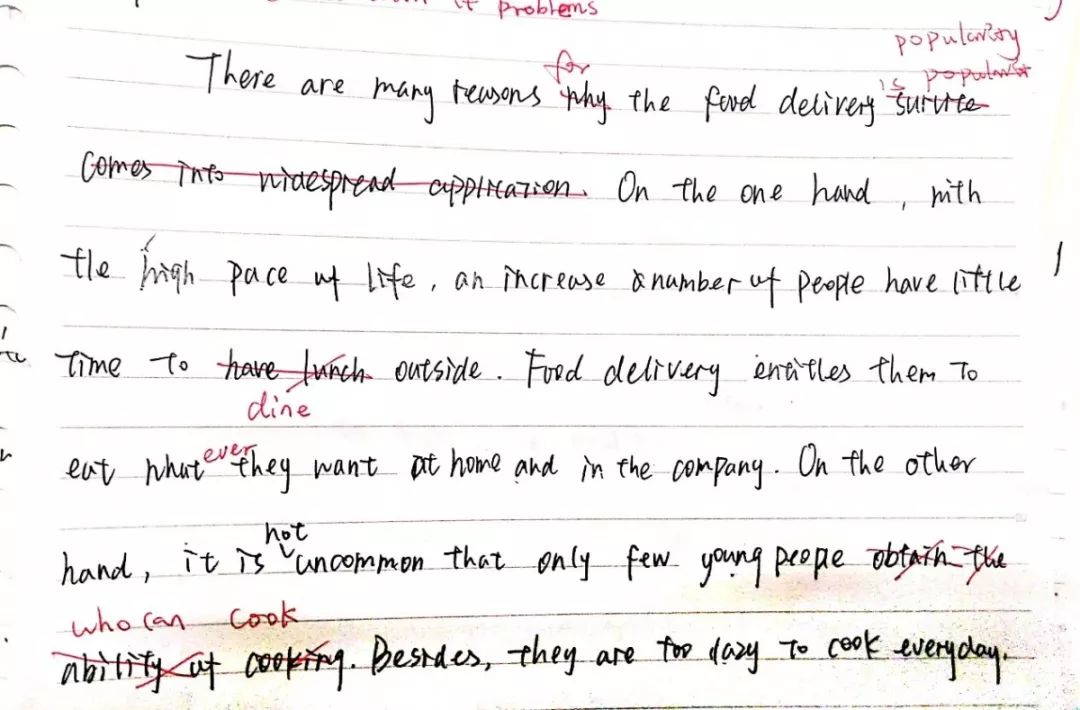 it problems
popularity
for is popular
There are many reasons why the food delivery survice
comes into widespread application. On the one hand, with
the high pace of life, an increase a number of people have little
time to have lunch outside. Food delivery entitles them to
dine
ever
eat what they want at home and in the company. On the other
not
hand, it is uncommon that only few young people obtain the
who can cook
ability of cooking. Besides, they are too lazy to cook everyday.